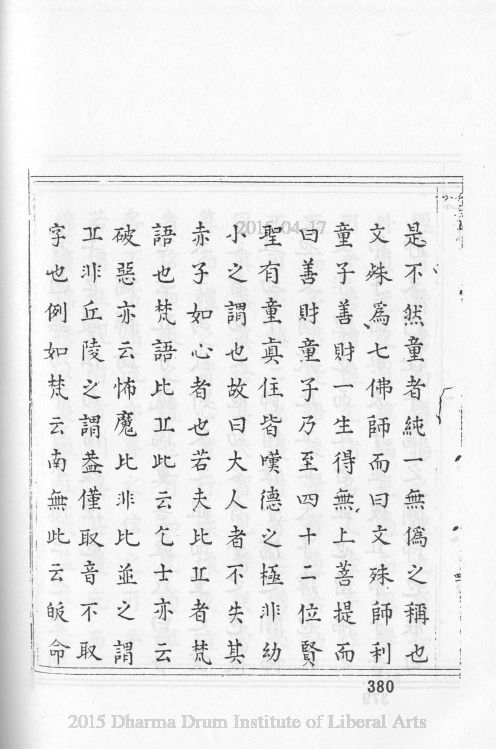 是不然童者純一無偽之稱也
文殊為七佛師而曰文殊師利
童子善財一生得無上菩提而
曰善財童子乃至四十二位賢
聖有童真住皆嘆德之極非幼
小之謂也故曰大人者不失其
赤子如心者也若夫比丘者梵
語也梵語比丘此云乞士亦云
破惡亦云怖魔比非比並之謂
丘非丘陵之謂蓋僅取音不取
字也例如梵云南無此云皈命
380
2015.04.17
2015 Dharma Drum Institute of Liberal Arts